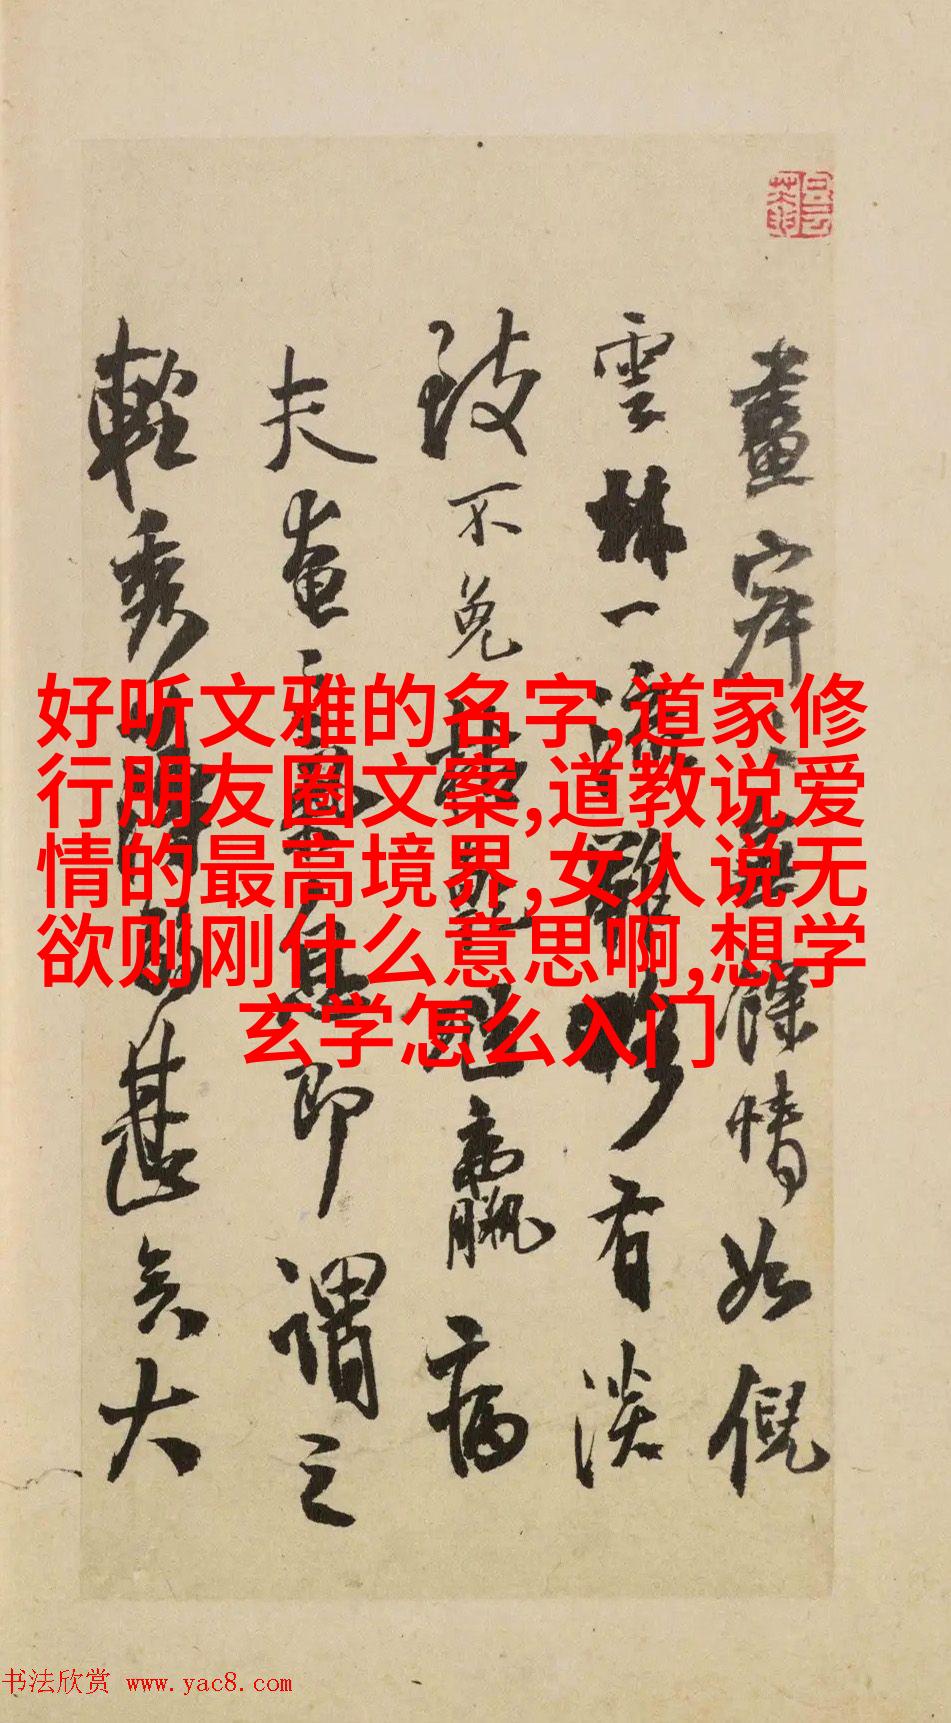 好听文雅的名字,道家修
行朋友圈文案,道教说爱
情的最高境界,女人说无
欲则刚什么意思啊,想学
玄学怎么入门
畫 餘情如倪
雲林一 有淡
致不免 羸病
夫奄 息即謂之
輕秀 甚矣大
书法欣赏 www.yac8.com